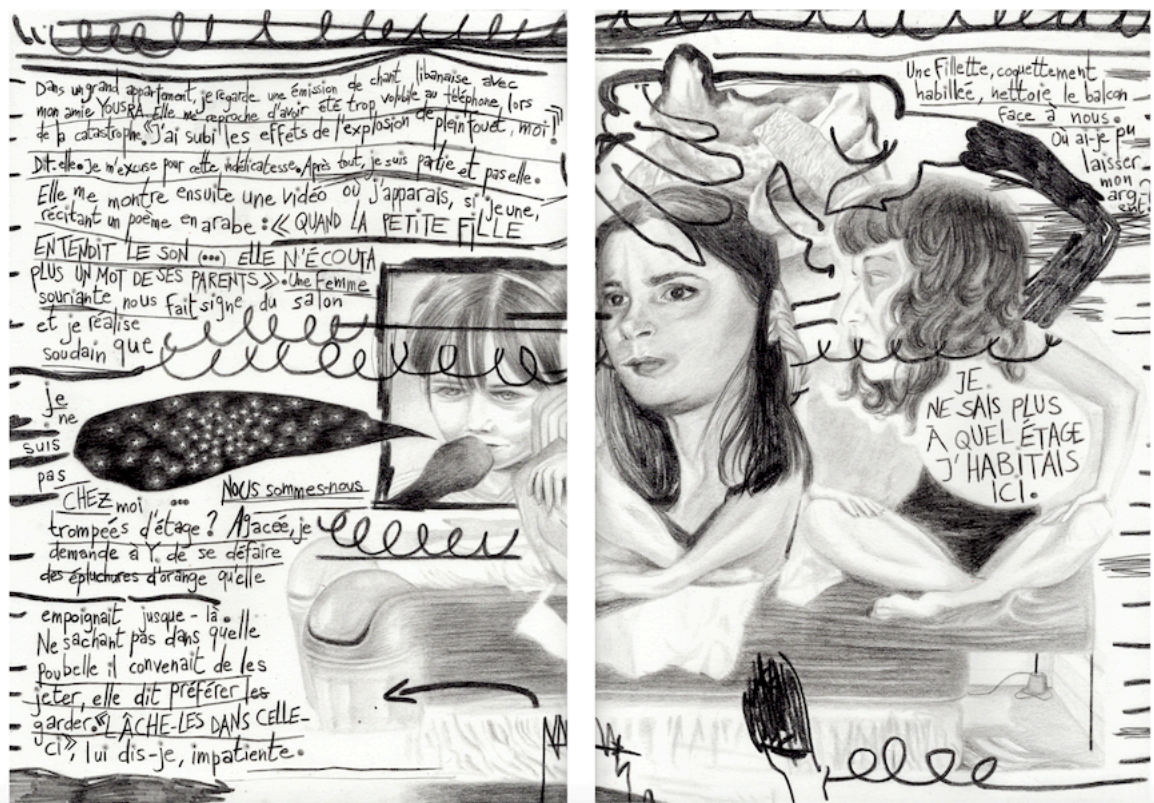 Dans un grand appartement, je regarde une émission de chant libanaise avec
mon amie YOUSRA. Elle me reproche d'avoir été trop volubile au téléphone, lors
de la catastrophe. «J'ai subi les effets de l'explosion de plein fouet, moi!»
Dit-elle. Je m'excuse pour cette indélicatesse. Après tout, je suis partie et pas elle.
Elle me montre ensuite une vidéo où j'apparais, si jeune,
récitant un poème en arabe : « QUAND LA PETITE FILLE
ENTENDIT LE SON (...) ELLE N'ÉCOUTA
PLUS UN MOT DE SES PARENTS ». Une Femme
souriante nous fait signe du salon
et je réalise
soudain que
je
ne
suis
pas
CHEZ moi ...
Nous sommes-nous
trompées d'étage ? Agacée, je
demande à Y. de se défaire
des épluchures d'orange qu'elle
empoignait jusque-là.
Ne sachant pas dans quelle
Poubelle il convenait de les
jeter, elle dit préférer les
garder. «LÂCHE-LES DANS CELLE-
CI», lui dis-je, impatiente.
Une Fillette, coquettement
habillée, nettoie le balcon
Face à nous.
Où ai-je pu
laisser
mon
arg-
ent.
JE
NE SAIS PLUS
À QUEL ÉTAGE
J'HABITAIS
ICI.